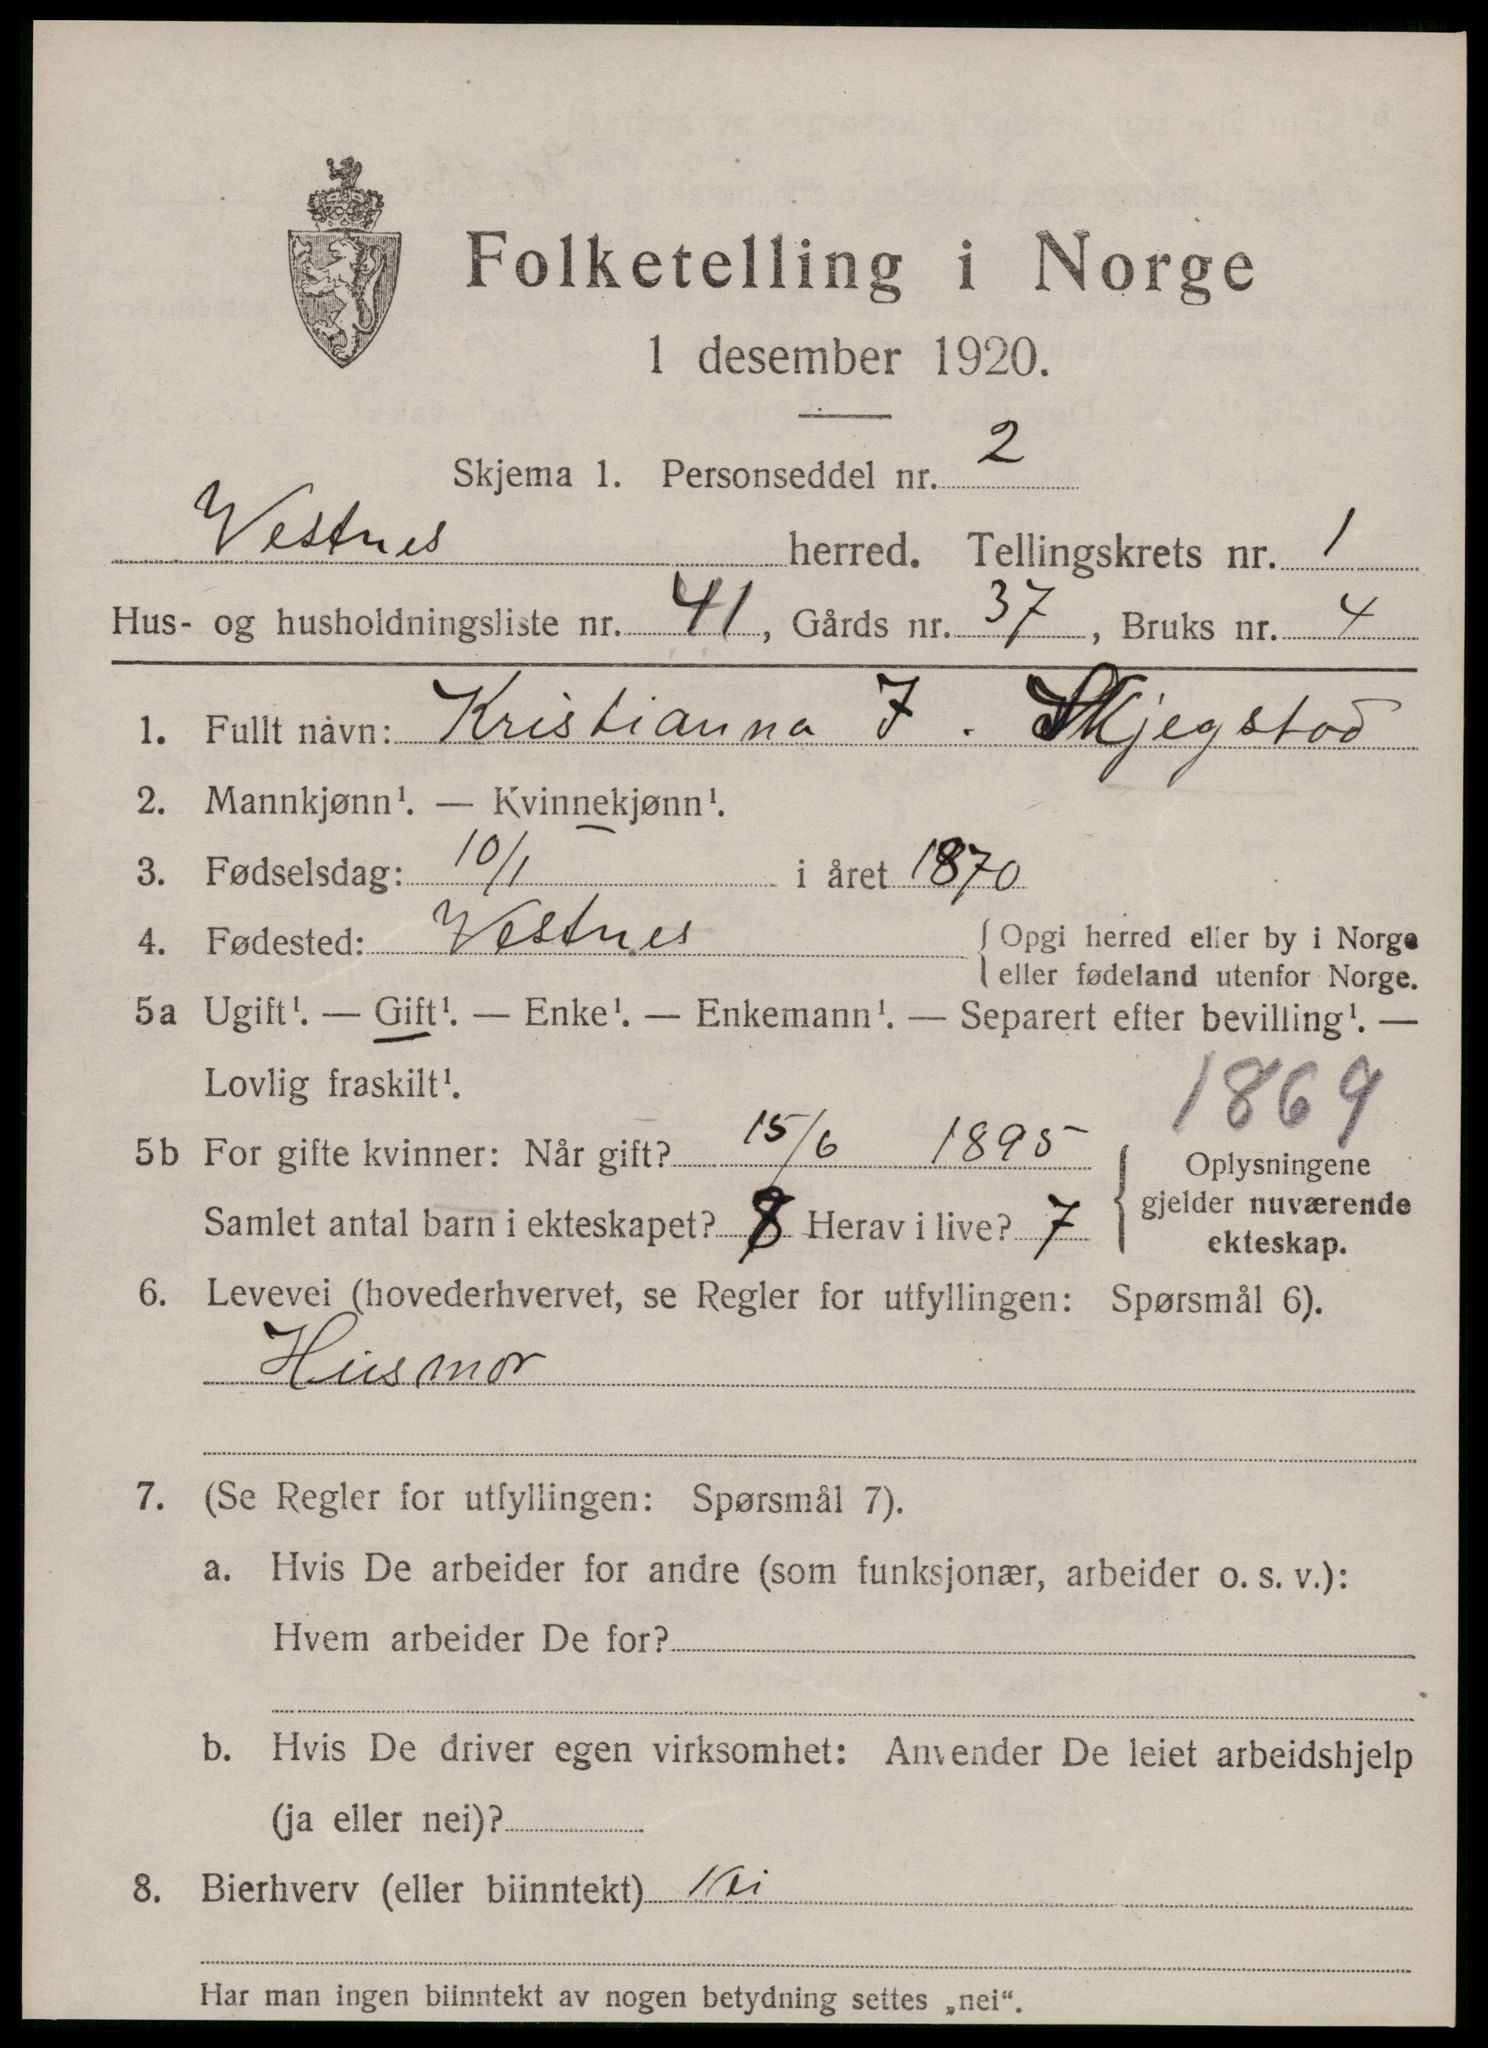 Folketelling i Norge
1 desember 1920.
Skjema 1. Personseddel nr. 2
Vestnes herred. Tellingskrets nr. 1
Hus- og husholdningsliste nr. 41, Gårds nr. 37, Bruks nr. 4
1. Fullt navn: Kristianna J. Skjegstad
2. Mannkjønn¹. — Kvinnekjønn¹.
3. Fødselsdag: 10/1 i året 1870
4. Fødested: Vestnes { Opgi herred eller by i Norge
eller fødeland utenfor Norge.
5a Ugift¹. — Gift¹. — Enke¹. — Enkemann¹. — Separert efter bevilling¹. —
Lovlig fraskilt¹.
1869
5b For gifte kvinner: Når gift? 15/6 1895
Samlet antal barn i ekteskapet? 8 Herav i live? 7
{ Oplysningene
gjelder nuværende
ekteskap.
6. Levevei (hovederhvervet, se Regler for utfyllingen: Spørsmål 6).
Husmor
7. (Se Regler for utfyllingen: Spørsmål 7).
a. Hvis De arbeider for andre (som funksjonær, arbeider o. s. v.):
Hvem arbeider De for?
b. Hvis De driver egen virksomhet: Anvender De leiet arbeidshjelp
(ja eller nei)?
8. Bierhverv (eller biinntekt) Nei
Har man ingen biinntekt av nogen betydning settes „nei“.